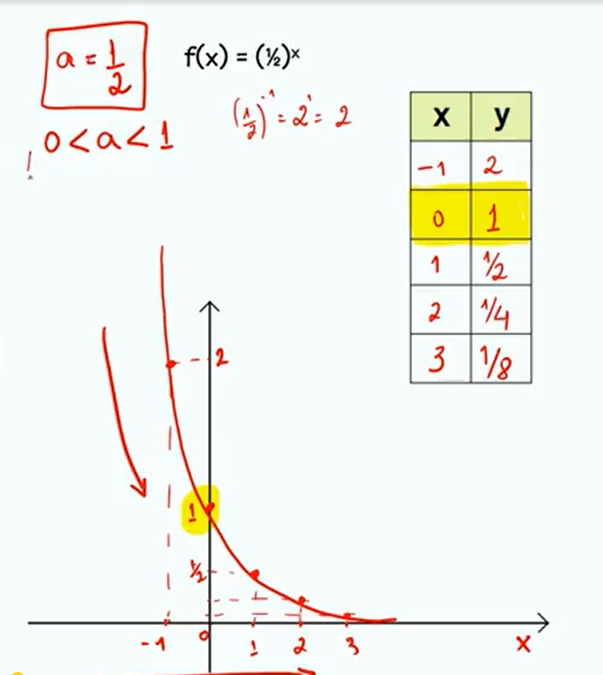 a = 1/2
f(x) = (½)ˣ
(1/2)⁻¹ = 2¹ = 2
0 < a < 1
!
x y
-1 2
0 1
1 1/2
2 1/4
3 1/8
2
1
1/2
-1 0 1 2 3 x